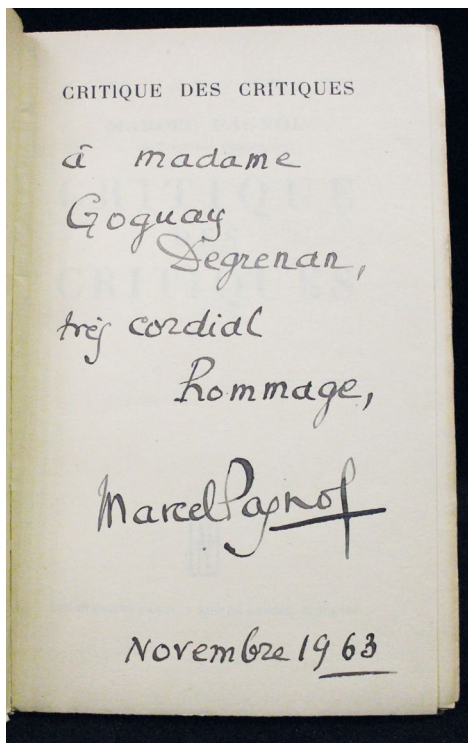 CRITIQUE DES CRITIQUES
à madame
Goguay
Degrenan,
très cordial
hommage,
Marcel Pagnol
Novembre 1963